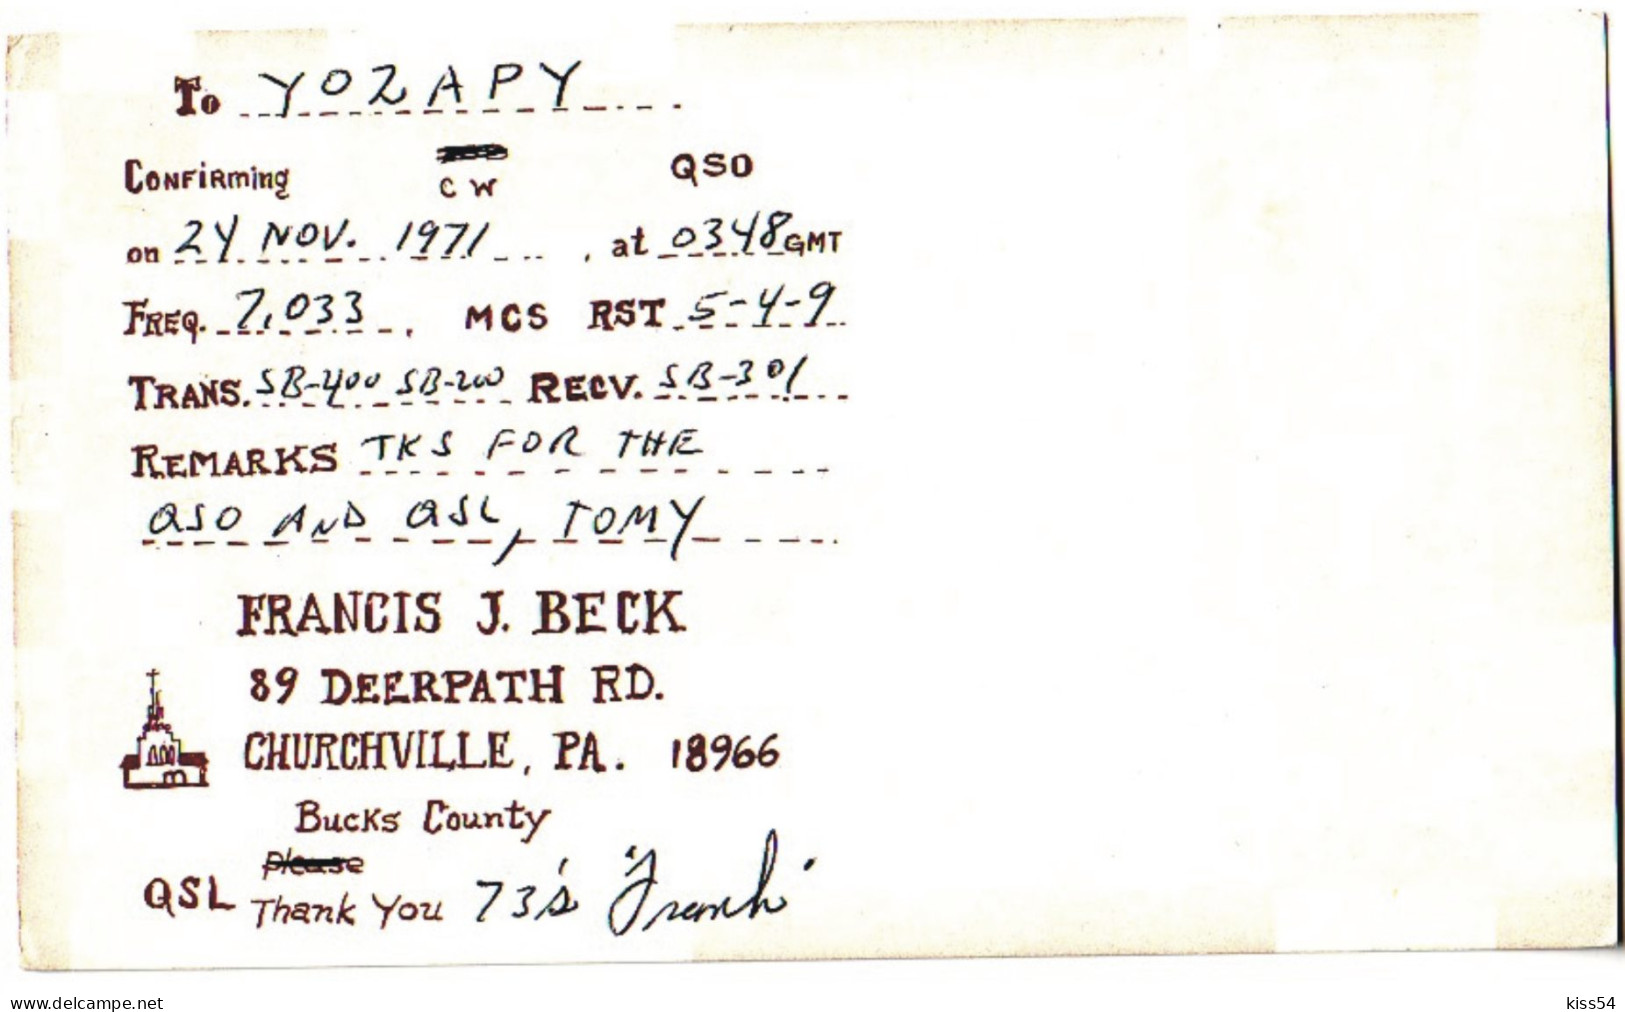 To YO2APY
Confirming CW QSO
on 24 NOV. 1971, at 0348 GMT
FREQ. 7,033, MCS RST 5-4-9
TRANS. SB-400 SB-200 RECV. SB-301
REMARKS TKS FOR THE
QSO AND QSL, TOMY
FRANCIS J. BECK
89 DEERPATH RD.
CHURCHVILLE, PA. 18966
Bucks County
Please
QSL Thank You 73's "Frank"
www.delcampe.net
kiss54